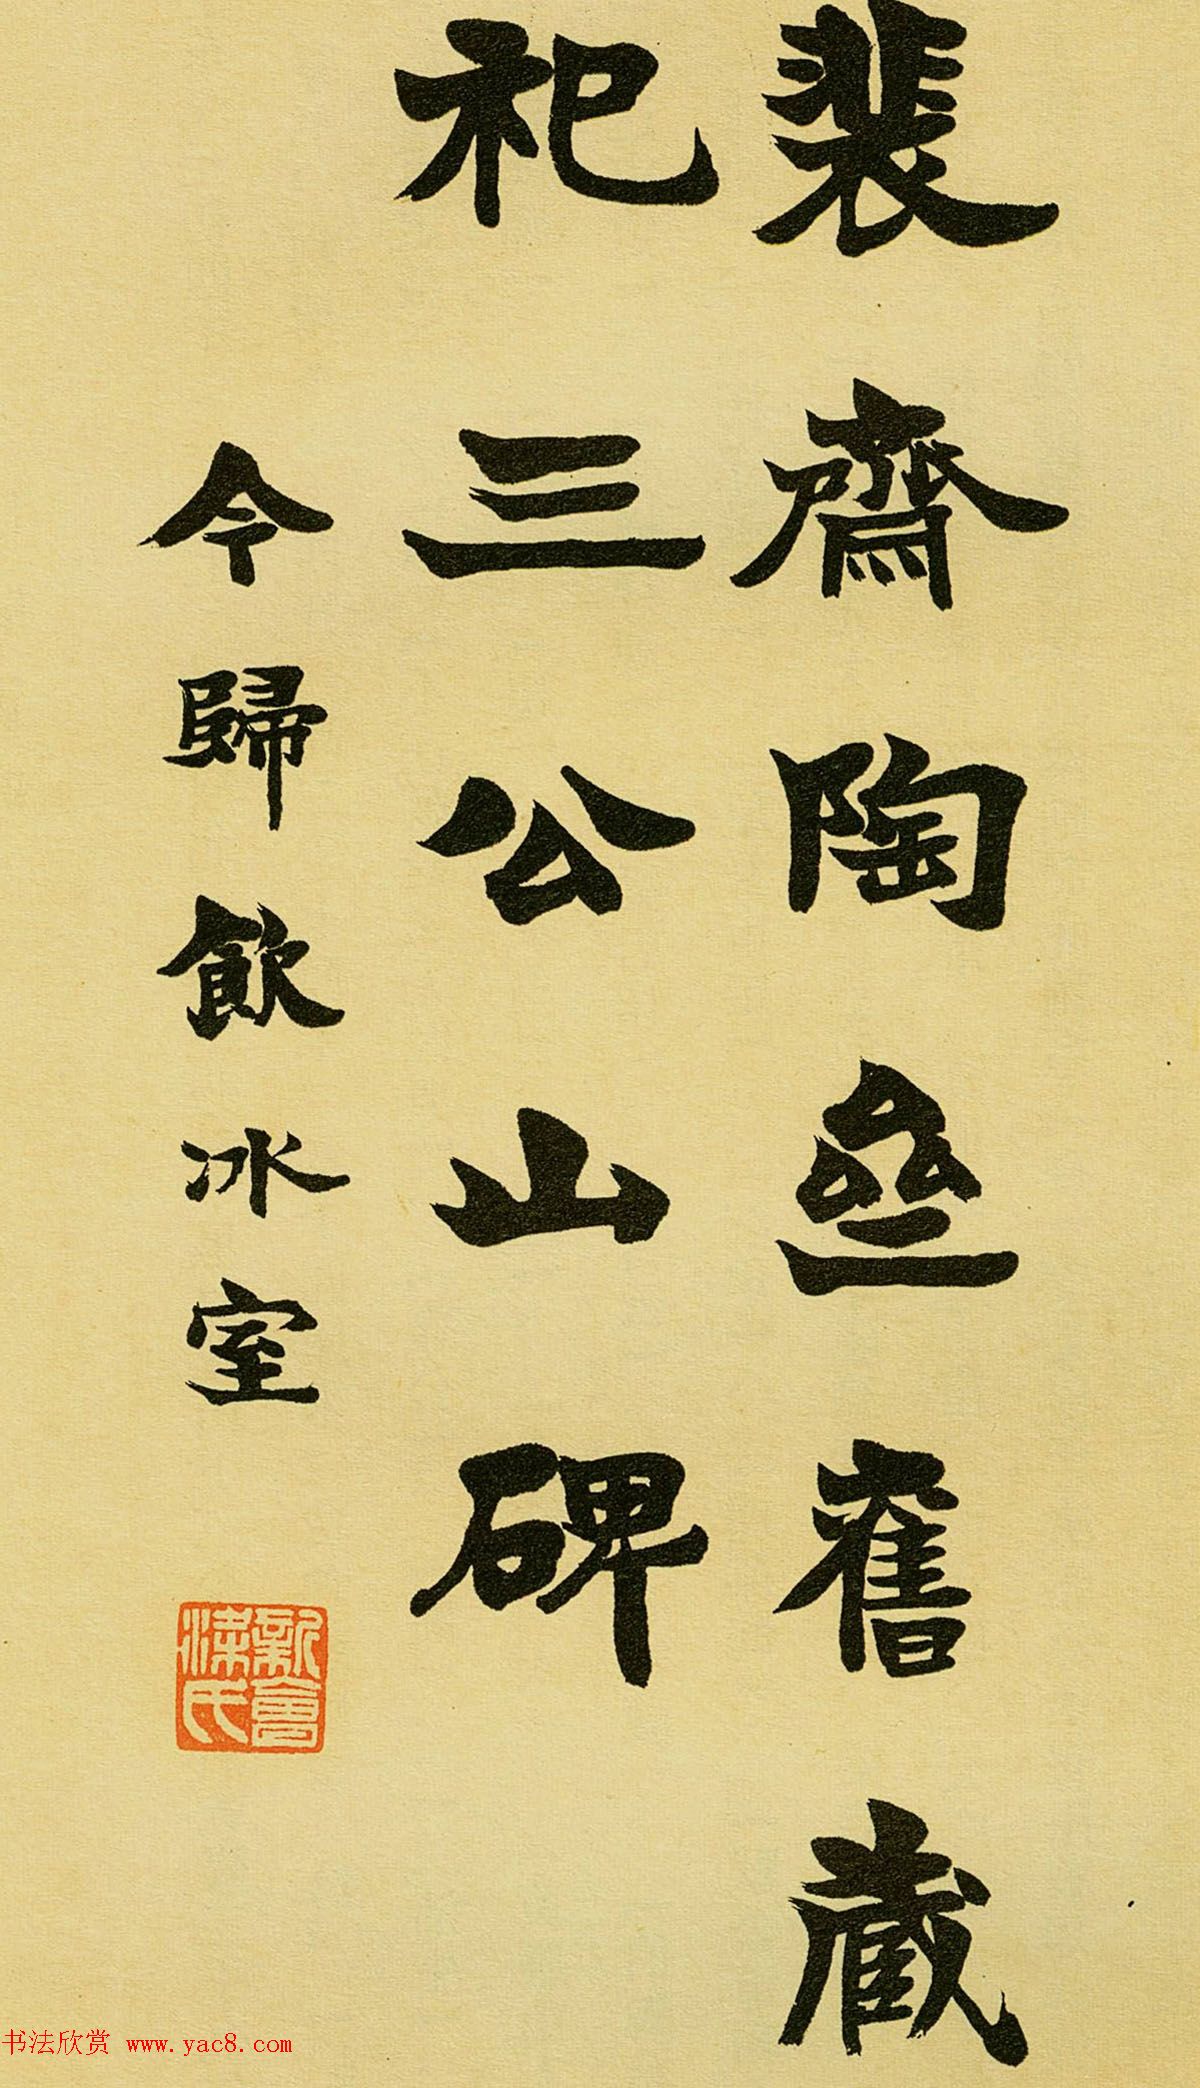 裴齋陶壘舊藏
祀三公山碑
今歸飲冰室
新會梁氏
书法欣赏 www.yac8.com